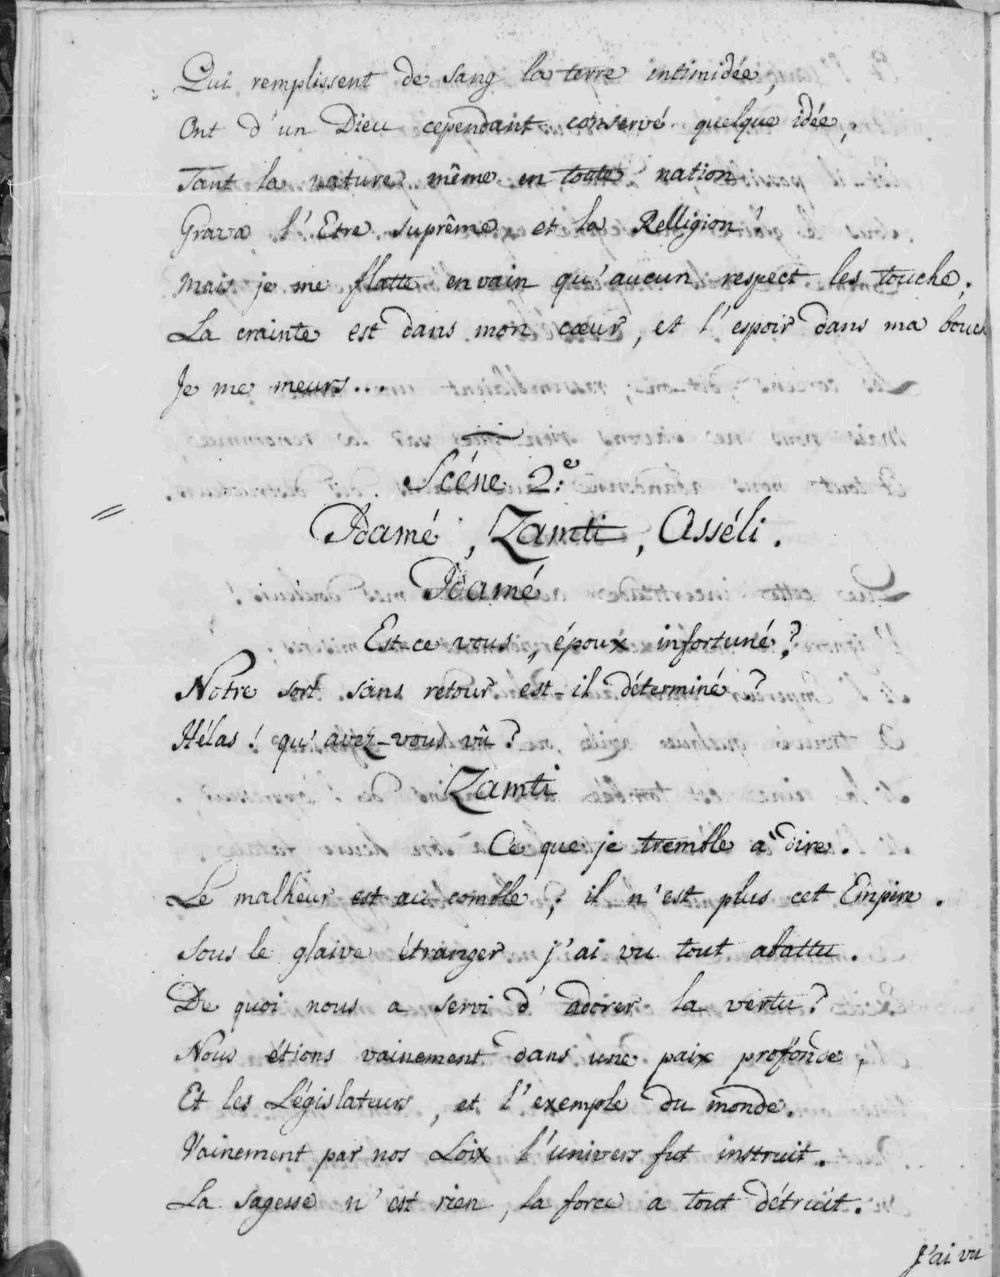 Qui remplissent de sang la terre intimidée,
Ont d'un Dieu cependant conservé quelque idée,
Tant la nature même en toute nation
Grava l'Etre suprême et la Relligion!
Mais je me flatte envain qu'aucun respect les touche,
La crainte est dans mon cœur, et l'espoir dans ma bouche
Je me meurs...
Scéne 2.e
Idamé, Zamti, Asséli.
Idamé
Est-ce vous, époux infortuné?
Notre sort sans retour est-il déterminé?
Hélas! qu'avez-vous vû?
Zamti
Ce que je tremble a dire.
Le malheur est au comble, il n'est plus cet Empire.
Sous le glaive étranger j'ai vu tout abattu.
De quoi nous a servi d'adorer la vertu?
Nous étions vainement dans une paix profonde,
Et les Législateurs, et l'exemple du monde.
Vainement par nos Loix l'univers fut instruit.
La sagesse n'est rien, la force a tout détruit.
J'ai vu